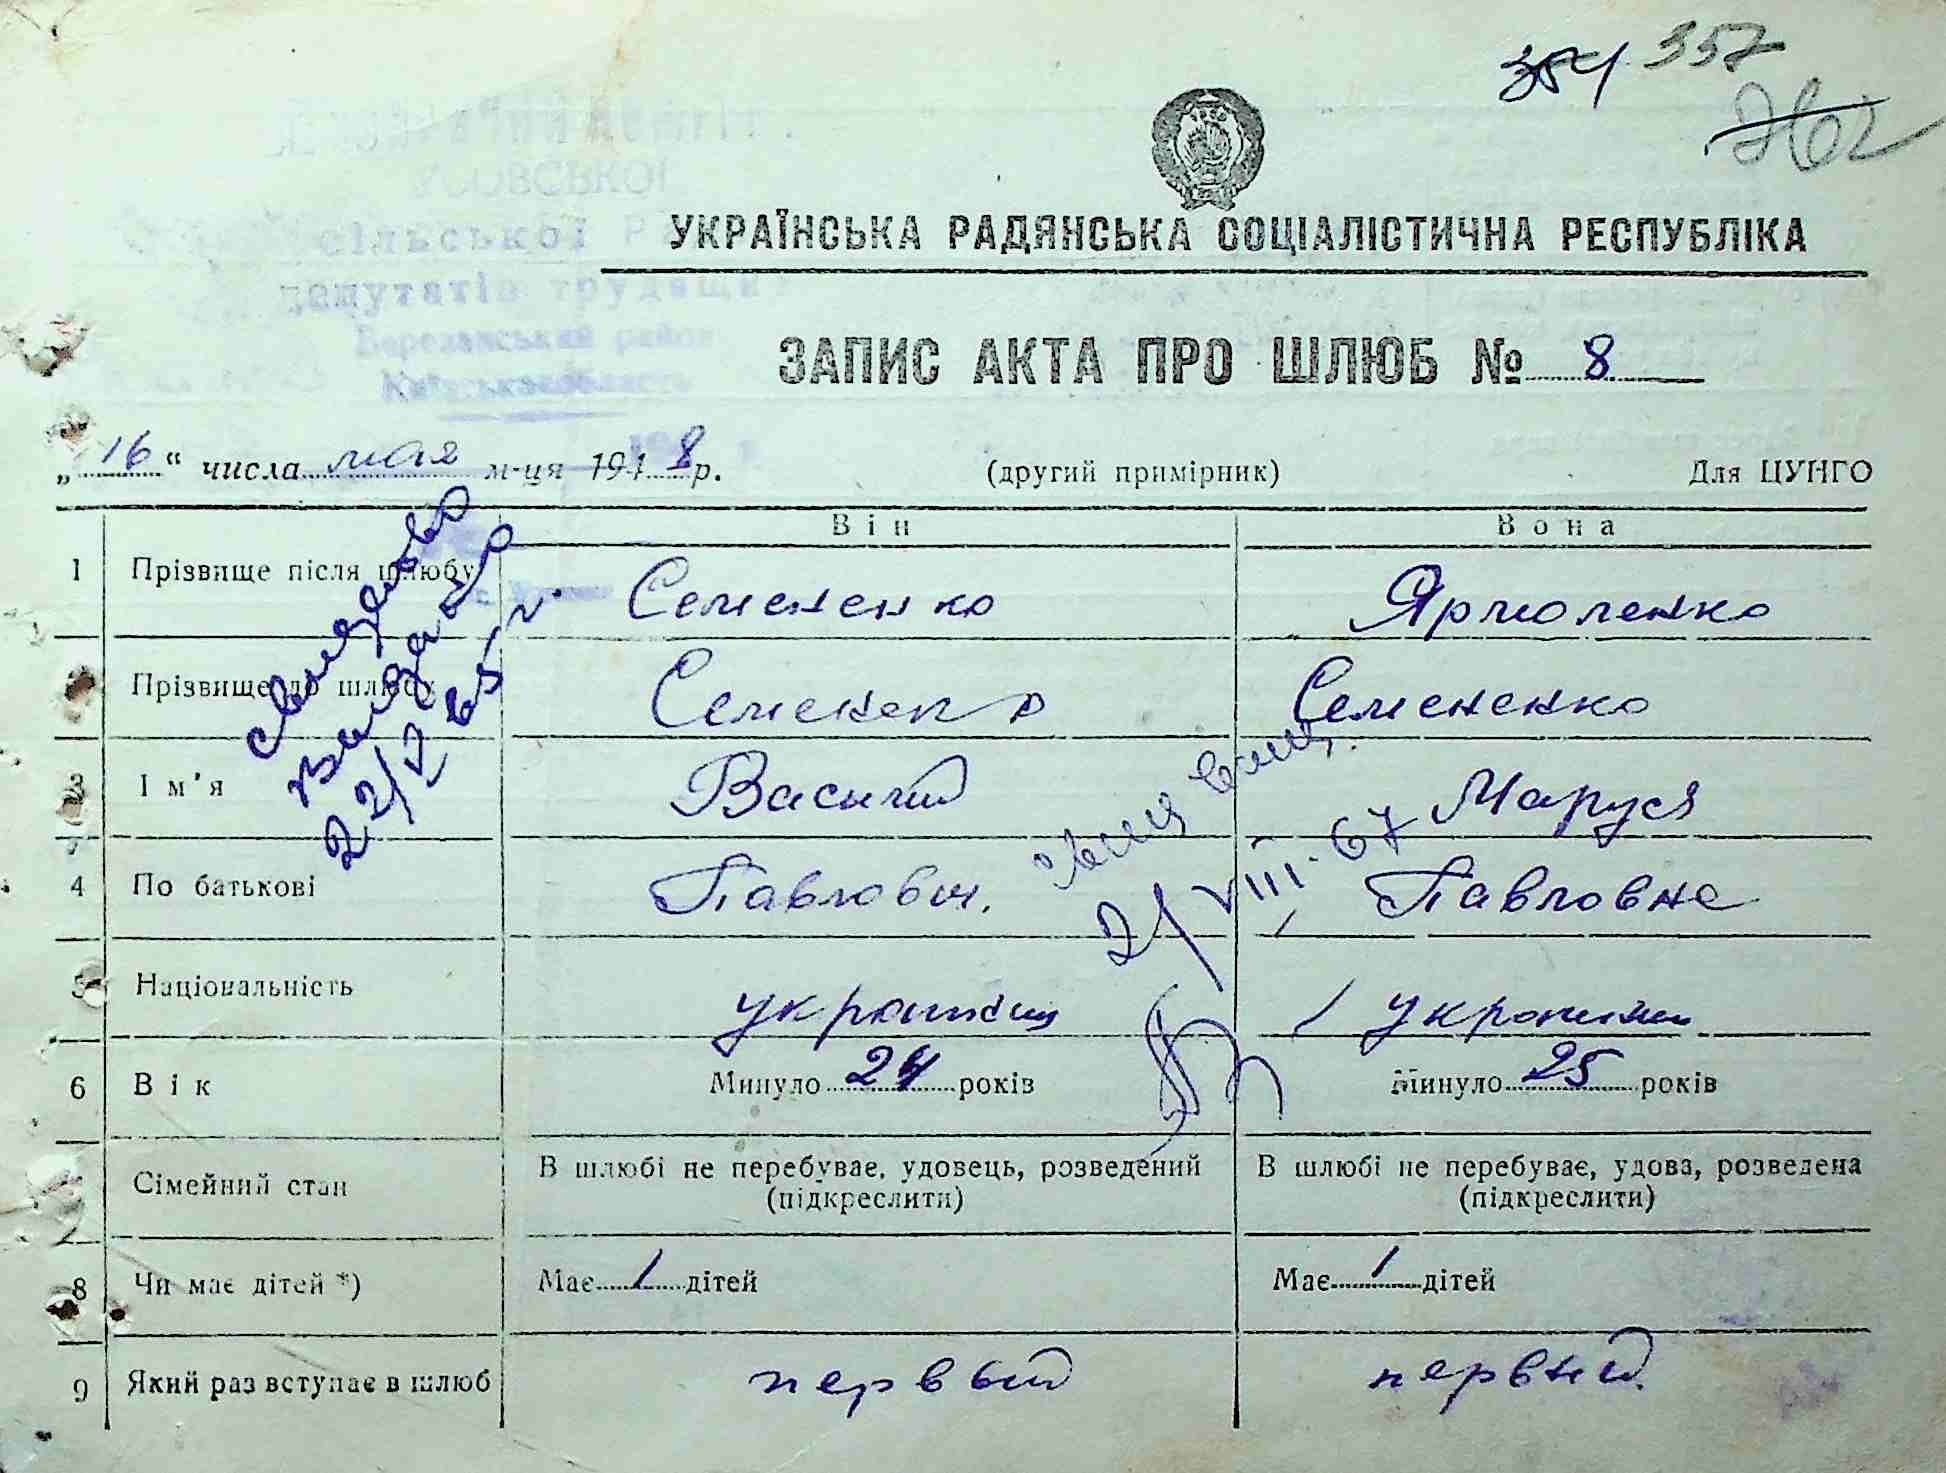 354 357
362
УКРАЇНСЬКА РАДЯНСЬКА СОЦІАЛІСТИЧНА РЕСПУБЛІКА
сільської
депутатів трудящих
Березанський район
Київська область
ЗАПИС АКТА ПРО ШЛЮБ № 8
„16“ числа мая м-ця 1948 р. (другий примірник) Для ЦУНГО
Він Вона
1 Прізвище після шлюбу Семененко Ярмоленко
Прізвище до шлюбу Семененко Семененко
3 Ім'я Василий Маруся
4 По батькові Павлович. Павловна
5 Національність украинец украинка
6 Вік Минуло 24 років Минуло 25 років
Сімейний стан В шлюбі не перебуває, удовець, розведений (підкреслити) В шлюбі не перебуває, удова, розведена (підкреслити)
8 Чи має дітей *) Має 1 дітей Має 1 дітей
9 Який раз вступає в шлюб первый первый
22/2 65 г.
2/VIII-67